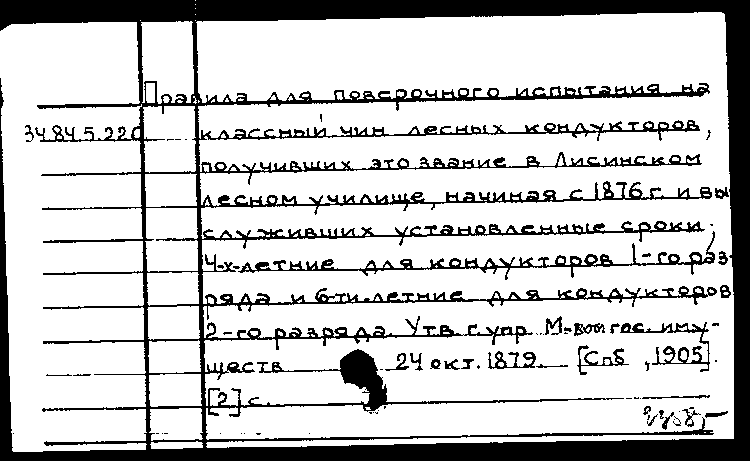 Правила для поверочного испытания на
34.84.5.220 классный чин лесных кондукторов,
получивших это звание в Лисинском
лесном училище, начиная с 1876 г. и вы
служивших установленные сроки:
4-х-летние для кондукторов 1-го раз-
ряда и 6-ти-летние для кондукторов
2-го разряда. Утв. г. упр. М-вом гос. иму-
ществ 24 окт. 1879. [Спб, 1905].
[2] с.